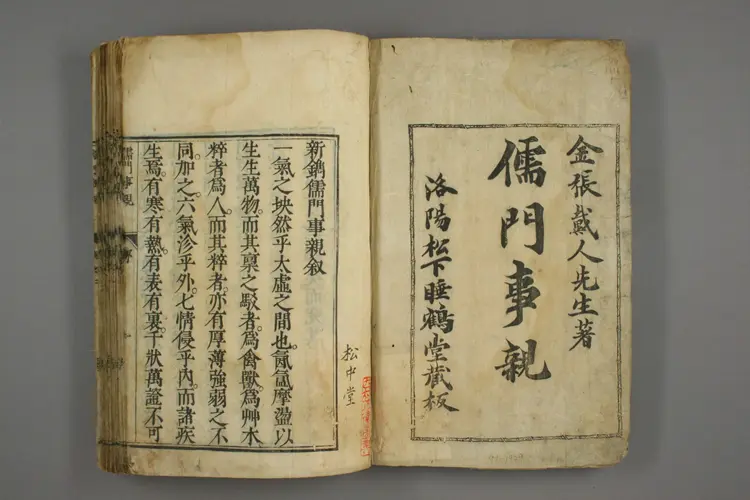 金張戴人先生著
儒門事親
洛陽松下睡鶴堂藏板
新鐫儒門事親叙
一氣之坱然乎太虛之間也。氤氳摩盪以
生生萬物。而其稟之駁者。爲禽獸。爲艸木。
粹者爲人。而其粹者。亦有厚薄強弱之不
同。加之。六氣沴乎外。七情侵乎内。而諸疾
生焉。有寒有熱。有表有裏。千狀萬證不可
儒門事親
松中堂